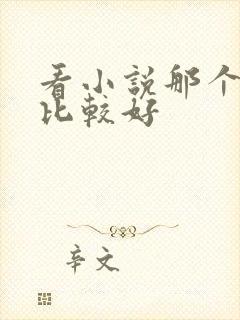 看小說那个
比較好
辛文